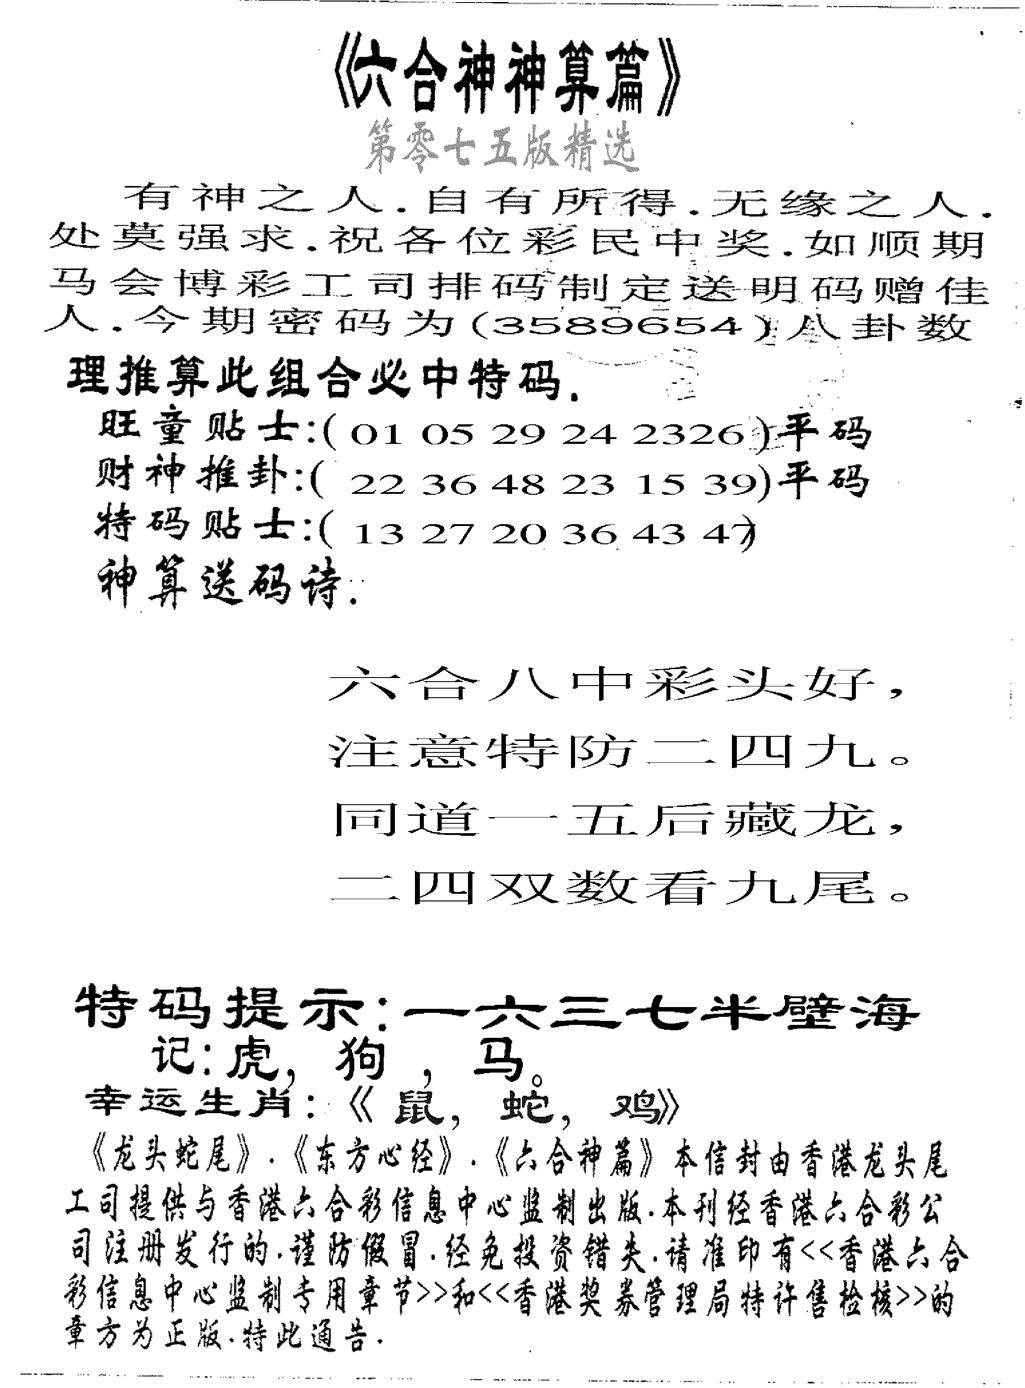 《六合神神算篇》
第零七五版精选
有神之人.自有所得.无缘之人.
处莫强求.祝各位彩民中奖.如顺期
马会博彩工司排码制定送明码赠佳
人.今期密码为(3589654)八卦数
理推算此组合必中特码.
旺童贴士:( 01 05 29 24 2326 )平码
财神推卦:( 22 36 48 23 15 39)平码
特码贴士:( 13 27 20 36 43 47)
神算送码诗.
六合八中彩头好,
注意特防二四九。
同道一五后藏龙,
二四双数看九尾。
特码提示:一六三七半壁海
记:虎,狗,马。
幸运生肖:《鼠,蛇,鸡》
《龙头蛇尾》.《东方心经》.《六合神篇》本信封由香港龙头尾
工司提供与香港六合彩信息中心监制出版.本刊经香港六合彩公
司注册发行的.谨防假冒.经免投资错失.请准印有<<香港六合
彩信息中心监制专用章节>>和<<香港奖券管理局特许售检核>>的
章方为正版.特此通告.